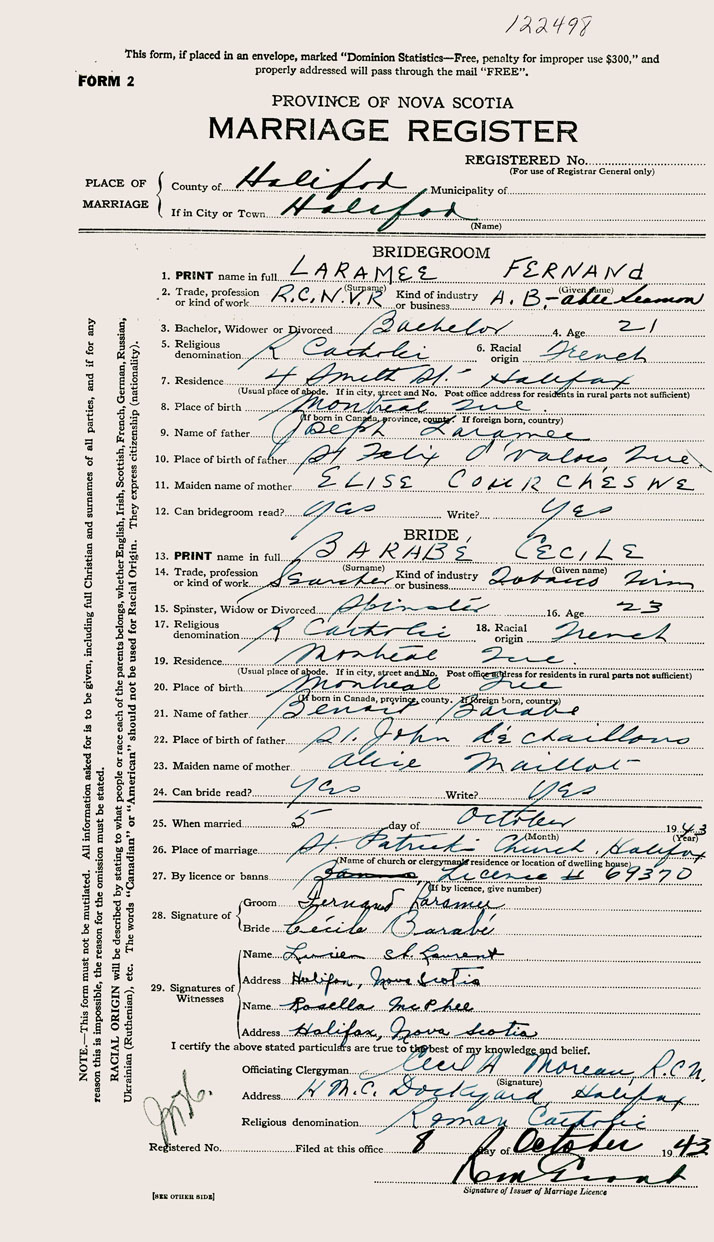 122498
This form, if placed in an envelope, marked “Dominion Statistics—Free, penalty for improper use $300,” and
properly addressed will pass through the mail “FREE”.
FORM 2
PROVINCE OF NOVA SCOTIA
MARRIAGE REGISTER
REGISTERED No.
(For use of Registrar General only)
PLACE OF MARRIAGE
County of Halifax Municipality of
If in City or Town Halifax
(Name)
BRIDEGROOM
1. PRINT name in full LARAMEE FERNAND
(Surname) (Given name)
2. Trade, profession or kind of work R.C.N.V.R Kind of industry or business A.B.-able Seaman
3. Bachelor, Widower or Divorced Bachelor 4. Age 21
5. Religious denomination R Catholic 6. Racial origin French
7. Residence 4 Smith St. Halifax
(Usual place of abode. If in city, street and No. Post office address for residents in rural parts not sufficient)
8. Place of birth Montreal Que.
(If born in Canada, province, county. If foreign born, country)
9. Name of father Joseph Laramee
10. Place of birth of father St Felix D'Valois Que.
11. Maiden name of mother ELISE COURCHESNE
12. Can bridegroom read? yes Write? yes
BRIDE
13. PRINT name in full BARABÉ CECILE
(Surname) (Given name)
14. Trade, profession or kind of work Searcher Kind of industry or business Tobacco Firm
15. Spinster, Widow or Divorced Spinster 16. Age 23
17. Religious denomination R Catholic 18. Racial origin French
19. Residence Montreal Que.
(Usual place of abode. If in city, street and No. Post office address for residents in rural parts not sufficient)
20. Place of birth Montreal Que
(If born in Canada, province, county. If foreign born, country)
21. Name of father Benoit Barabe
22. Place of birth of father St. John de chaillons
23. Maiden name of mother Alice Maillot
24. Can bride read? yes Write? yes
25. When married 5 day of October 1943
(Month) (Year)
26. Place of marriage St Patrick's Church. Halifax
(Name of church or clergyman's residence or location of dwelling house)
27. By licence or banns Banns Licence # 69370
(If by licence, give number)
28. Signature of
Groom Fernand Laramee
Bride Cécile Barabé
29. Signatures of Witnesses
Name Lucien St. Laurent
Address Halifax, Nova Scotia
Name Rosella McPhee
Address Halifax, Nova Scotia
I certify the above stated particulars are true to the best of my knowledge and belief.
Officiating Clergyman Cecil A Moreau, R.C.N.
(Signature)
Address H.M.C. Dockyard, Halifax
Religious denomination Roman Catholic
Registered No. Filed at this office 8 day of October 1943
Signature of Issuer of Marriage Licence
[SEE OTHER SIDE]
NOTE.—This form must not be mutilated. All information asked for is to be given, including full Christian and surnames of all parties, and if for any
reason this is impossible, the reason for the omission must be stated.
RACIAL ORIGIN will be described by stating to what people or race each of the parents belongs, whether English, Irish, Scottish, French, German, Russian,
Ukrainian (Ruthenian), etc. The words “Canadian” or “American” should not be used for Racial Origin. They express citizenship (nationality).